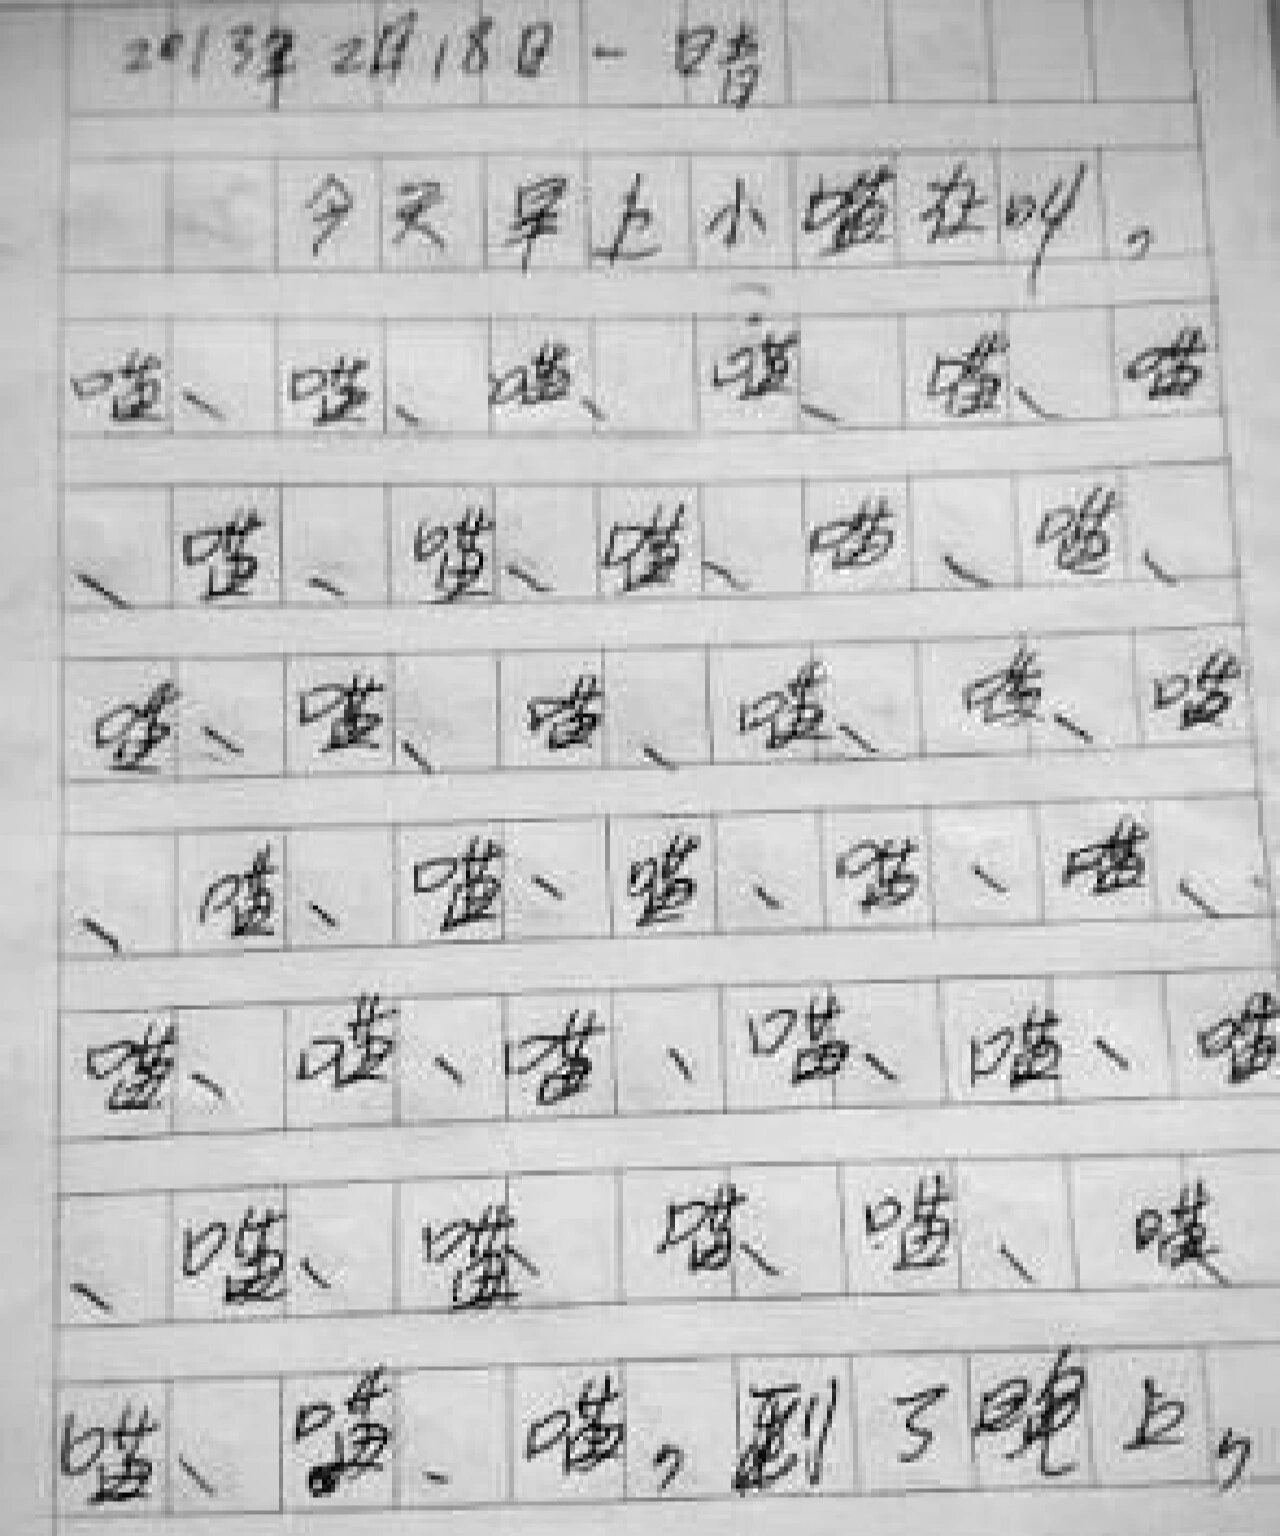 2013年2月18日 - 晴
今天早上小喵在叫，
喵、喵、喵、喵、喵、喵
、喵、喵、喵、喵、喵、
喵、喵、喵、喵、喵、喵
、喵、喵、喵、喵、喵、
喵、喵、喵、喵、喵、喵
、喵、喵、喵、喵、喵、
喵、喵、喵，到了晚上，